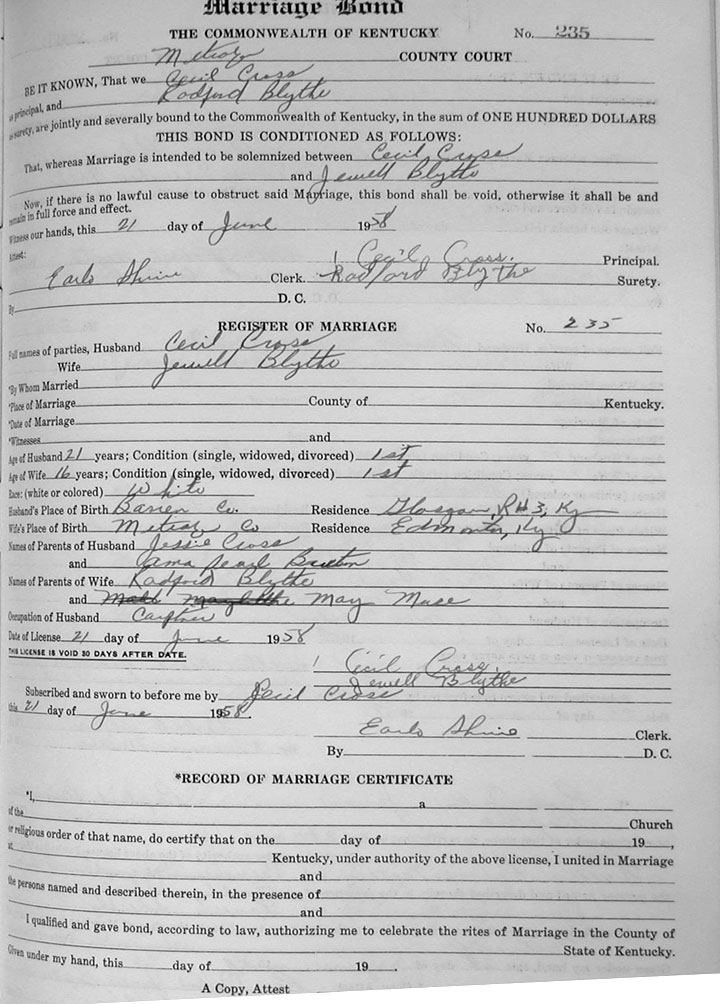 Marriage Bond
THE COMMONWEALTH OF KENTUCKY No. 235
COUNTY COURT
BE IT KNOWN, That we Cecil Cross
as principal, and Radford Blythe
as surety, are jointly and severally bound to the Commonwealth of Kentucky, in the sum of ONE HUNDRED DOLLARS
THIS BOND IS CONDITIONED AS FOLLOWS:
That, whereas Marriage is intended to be solemnized between Cecil Cross
and Jewell Blythe
Now, if there is no lawful cause to obstruct said Marriage, this bond shall be void, otherwise it shall be and
remain in full force and effect.
Witness our hands, this 21 day of June 1958
Attest: Cecil Cross. Principal.
Clerk. Radford Blythe Surety.
By D. C.
REGISTER OF MARRIAGE No. 235
Full names of parties, Husband Cecil Cross
Wife Jewell Blythe
*By Whom Married
*Place of Marriage County of Kentucky.
*Date of Marriage
*Witnesses and
Age of Husband 21 years; Condition (single, widowed, divorced) 1st
Age of Wife 16 years; Condition (single, widowed, divorced) 1st
Race: (white or colored) White
Husband's Place of Birth Barren Co. Residence Glasgow, R#3, Ky
Wife's Place of Birth Co Residence Edmonton, Ky
Names of Parents of Husband Jessie Cross
and Pearl
Names of Parents of Wife Radford Blythe
and May Muse
Occupation of Husband
Date of License 21 day of June 1958
THIS LICENSE IS VOID 30 DAYS AFTER DATE.
Cecil Cross.
Jewell Blythe
Subscribed and sworn to before me by Cecil Cross
this 21 day of June 1958.
Clerk.
By D. C.
*RECORD OF MARRIAGE CERTIFICATE
*I, a
of the Church
or religious order of that name, do certify that on the day of 19 ,
at Kentucky, under authority of the above license, I united in Marriage
and
the persons named and described therein, in the presence of
and
I qualified and gave bond, according to law, authorizing me to celebrate the rites of Marriage in the County of
State of Kentucky.
Given under my hand, this day of 19 .
A Copy, Attest